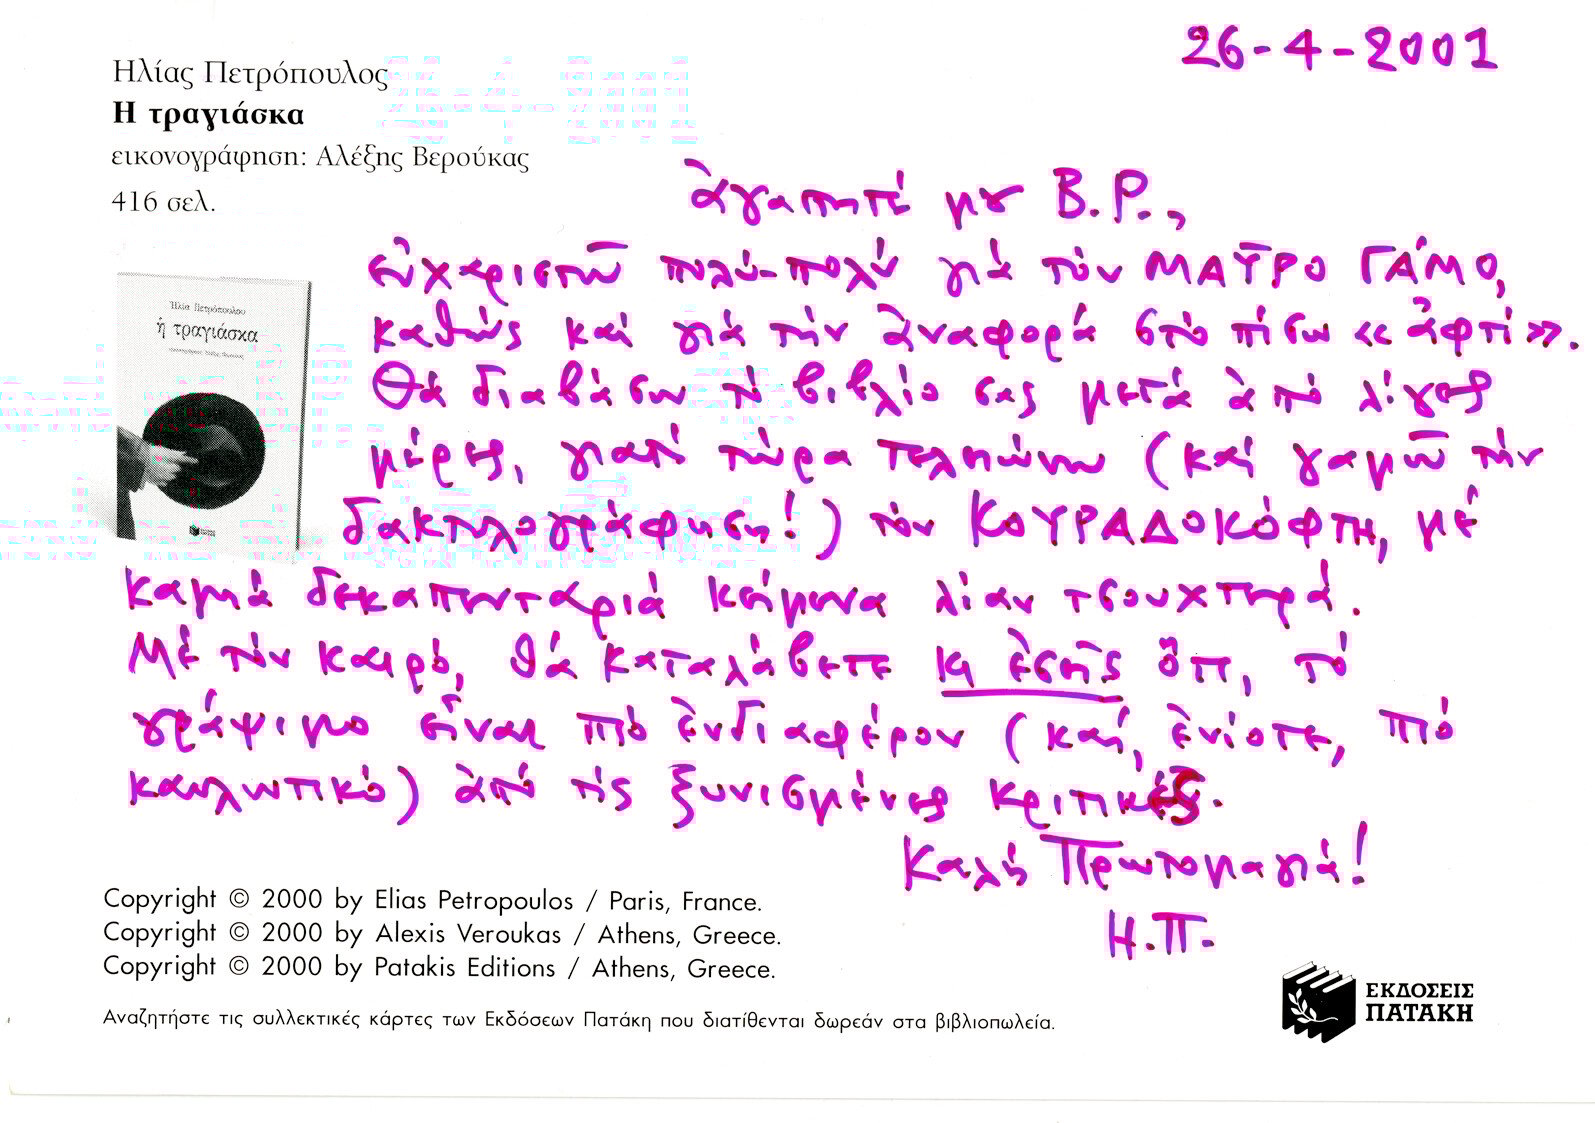 26-4-2001
Ηλίας Πετρόπουλος
Η τραγιάσκα
εικονογράφηση: Αλέξης Βερούκας
416 σελ.
Ἠλία Πετρόπουλου
ἡ τραγιάσκα
ἀγαπητέ μου Β.Ρ.,
εὐχαριστῶ πολύ-πολύ γιά τόν ΜΑΥΡΟ ΓΑΜΟ,
καθώς καί γιά τήν ἀναφορά στό πίσω «ἀφτί».
Θά διαβάσω τό βιβλίο σας μετά ἀπό λίγες
μέρες, γιατί τώρα τελειώνω (καί γαμῶ τήν
δακτυλογράφηση!) τόν ΚΟΥΡΑΔΟΚΟΦΤΗ, μέ
καμιά δεκαπενταριά κείμενα λίαν τσουχτερά.
Μέ τόν καιρό, θά καταλάβετε κι ἐσεῖς ὅτι, τό
γράψιμο εἶναι πιό ἐνδιαφέρον (καί, ἐνίοτε, πιό
καυλωτικό) ἀπό τίς ξυνισμένες κριτικές.
Καλή Πρωτομαγιά!
Η.Π.
Copyright © 2000 by Elias Petropoulos / Paris, France.
Copyright © 2000 by Alexis Veroukas / Athens, Greece.
Copyright © 2000 by Patakis Editions / Athens, Greece.
Αναζητήστε τις συλλεκτικές κάρτες των Εκδόσεων Πατάκη που διατίθενται δωρεάν στα βιβλιοπωλεία.
ΕΚΔΟΣΕΙΣ
ΠΑΤΑΚΗ